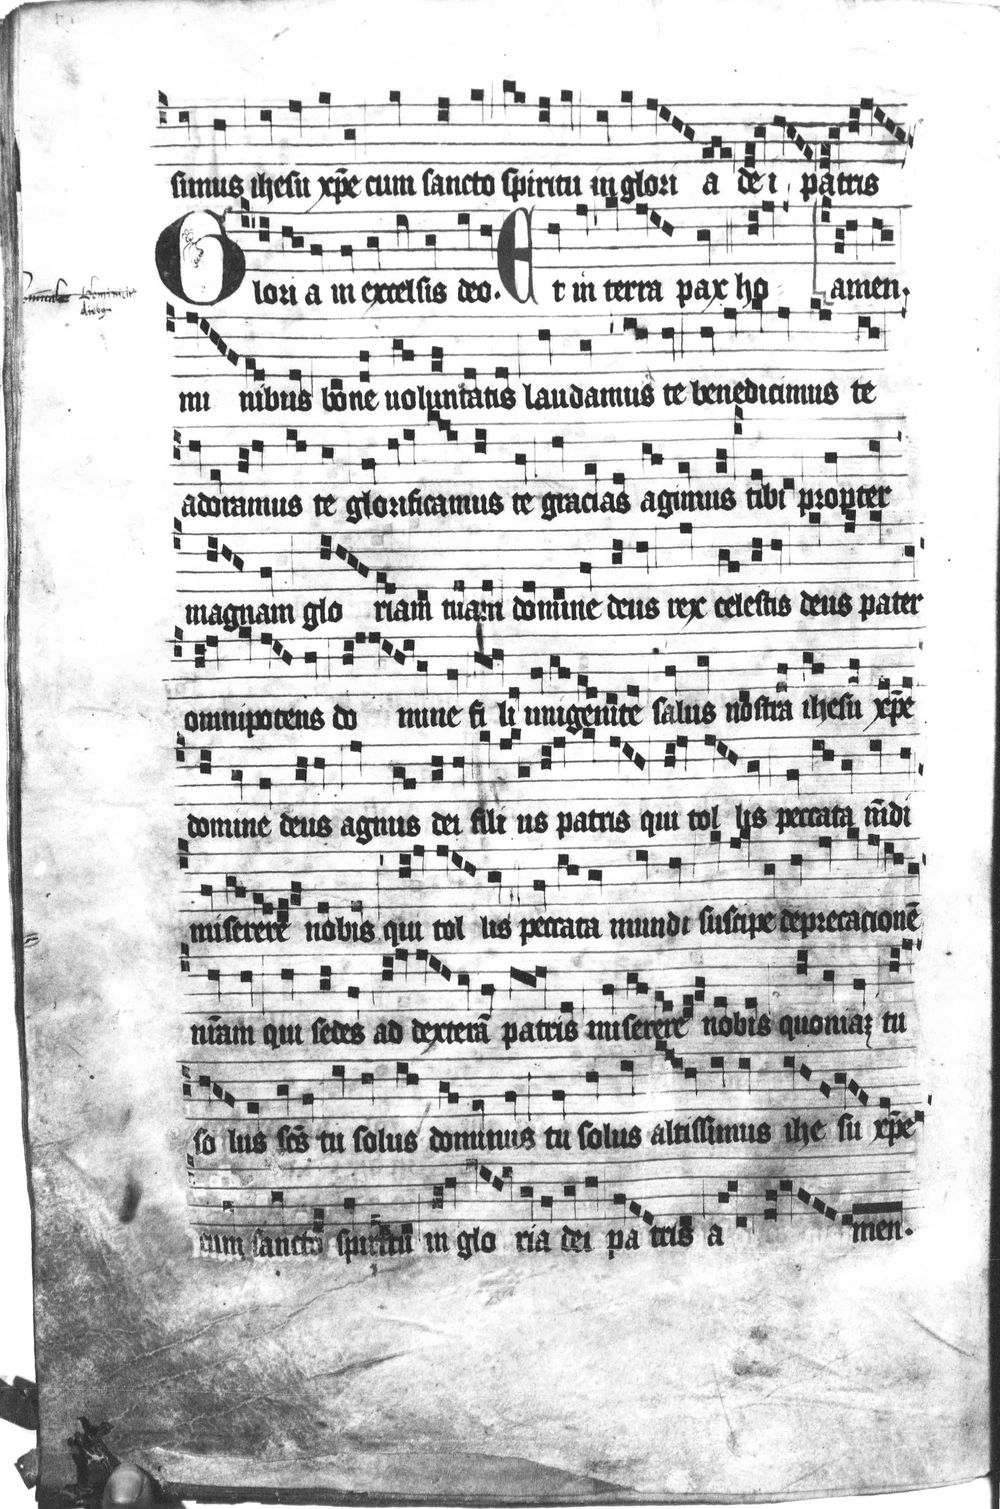 simus ihesu xp̄e cum sancto spiritu in glori a de i patris
Glori a in excelsis deo. Et in terra pax ho amen.
dominicis
diebus
mi nibus bone uoluntatis laudamus te benedicimus te
adoramus te glorificamus te gracias agimus tibi propter
magnam glo riam tuam domine deus rex celestis deus pater
omnipotens do mine fi li unigenite salus nostra ihesu xp̄e
domine deus agnus dei fili us patris qui tol lis peccata m̄di
miserere nobis qui tol lis peccata mundi suscipe deprecacionē
nr̄am qui sedes ad dexterā patris miserere nobis quoniaꝫ tu
so lus sc̄s tu solus dominus tu solus altissimus ihe su xp̄e
cum sancto spiritu in glo ria dei pa tris a men.